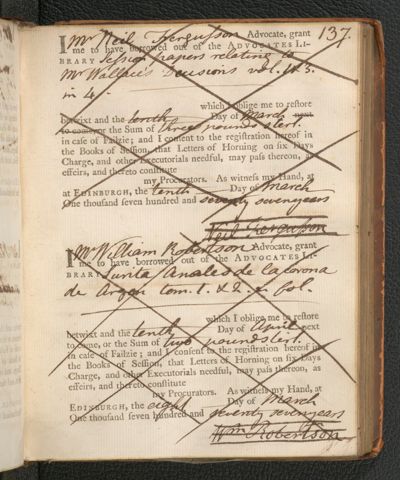 137.
I Mr Neil Fergusson Advocate, grant
me to have borrowed out of the ADVOCATES LI-
BRARY Session papers relating to
Mr Wallace's Decisions vol. 1. 3.
in 4.
which I oblige me to restore
betwixt and the tenth Day of March next
to come, or the Sum of three pounds sterl.
in case of Failzie; and I consent to the registration hereof in
the Books of Session, that Letters of Horning on six Days
Charge, and other Executorials needful, may pass thereon, as
effeirs, and thereto constitute
my Procurators. As witness my Hand, at
at EDINBURGH, the tenth Day of March
One thousand seven hundred and seventy seven years
Neil Fergusson
I Mr William Robertson Advocate, grant
me to have borrowed out of the ADVOCATES LI-
BRARY Surita Anales de la Corona
de Aragon tom. 1. & 2. fol.
which I oblige me to restore
betwixt and the tenth Day of April next
to come, or the Sum of two pounds sterl.
in case of Failzie; and I consent to the registration hereof in
the Books of Session, that Letters of Horning on six Days
Charge, and other Executorials needful, may pass thereon, as
effeirs, and thereto constitute
my Procurators. As witness my Hand, at
EDINBURGH, the eight Day of March
One thousand seven hundred and seventy seven years
Wm Robertson